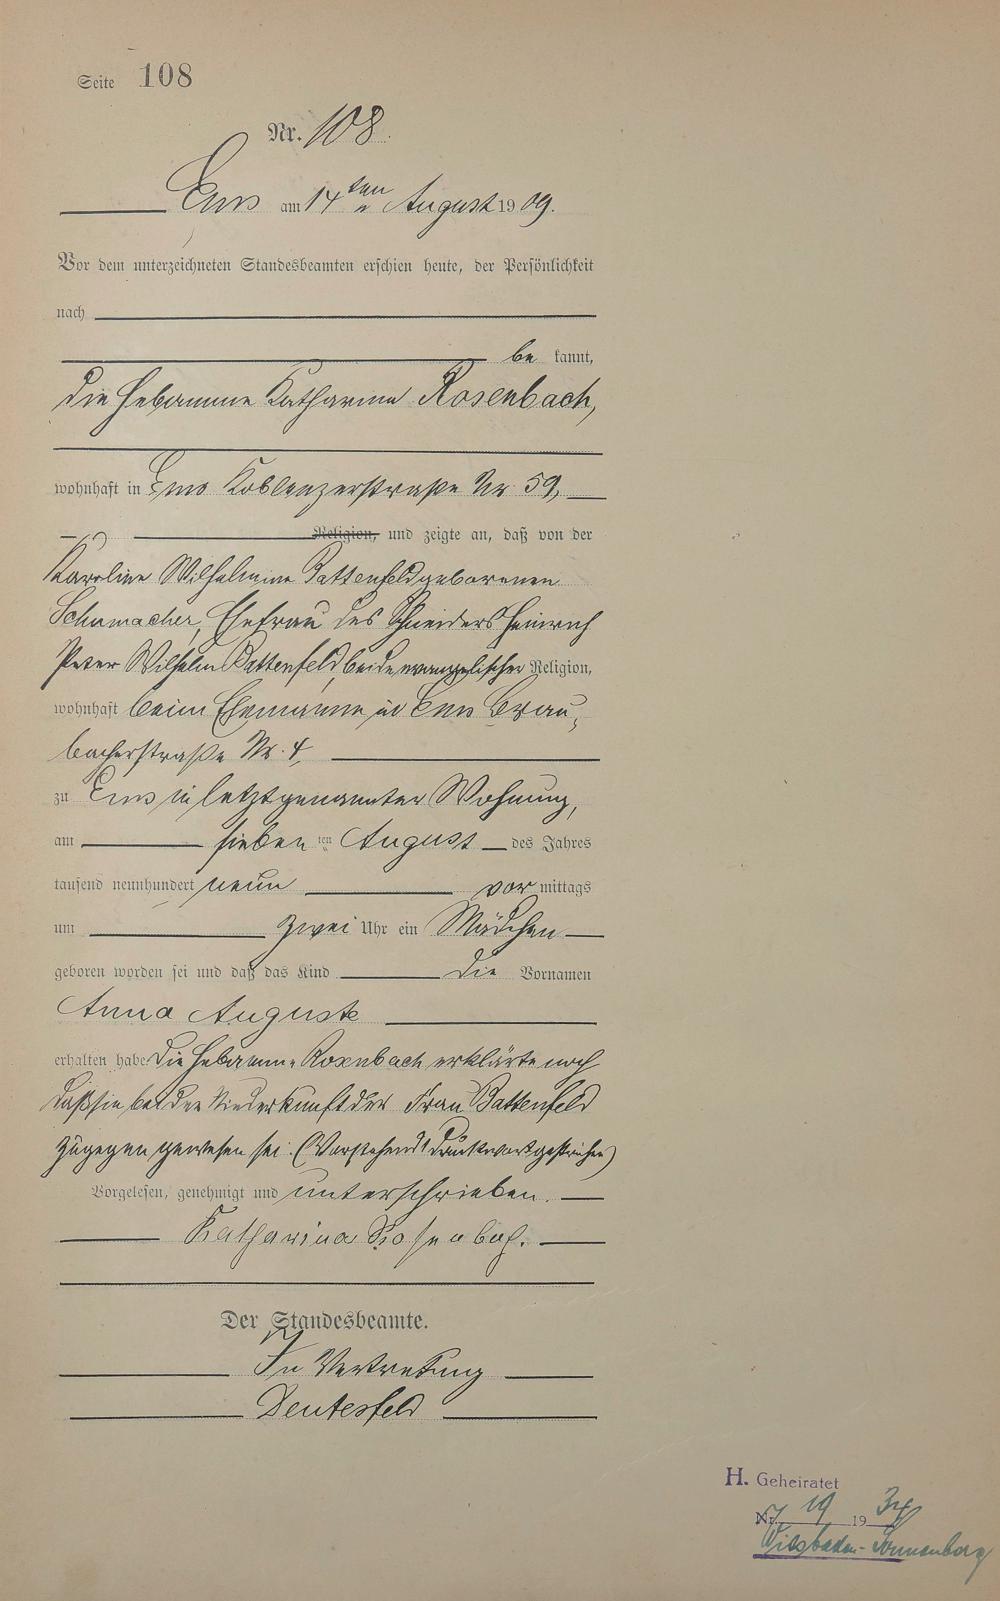 Seite 108
Nr. 108.
Ems am 14ten August 1909.
Vor dem unterzeichneten Standesbeamten erschien heute, der Persönlichkeit
nach
be kannt,
die Hebamme Katharina Rosenbach,
wohnhaft in Ems Koblenzerstraße Nr 59,
Religion, und zeigte an, daß von der
Karoline Wilhelmine Battenfeld geborenen
Schumacher, Ehefrau des Schneiders Heinrich
Peter Wilhelm Battenfeld, beide evangelischer Religion,
wohnhaft beim Ehemanne in Ems Brau-
bacherstraße Nr. 4,
zu Ems in letztgenannter Wohnung,
am sieben ten August des Jahres
tausend neunhundert neun vor mittags
um zwei Uhr ein Mädchen
geboren worden sei und daß das Kind die Vornamen
Anna Auguste
erhalten habe. Die Hebamme Rosenbach erklärte noch
daß sie bei der Niederkunft der Frau Battenfeld
zugegen gewesen sei. (Vorstehend 1 Druckwort gestrichen)
Vorgelesen, genehmigt und unterschrieben.
Katharina Rosenbach.
Der Standesbeamte.
In Vertretung
H. Geheiratet
Nr. 19 1934
Wiesbaden-Sonnenberg